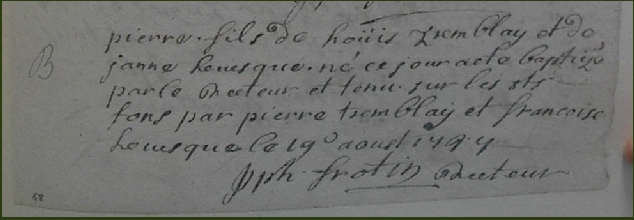 pierre fils de loüis tremblay et de
B
janne leuesque né ce jour a ete baptizé
par le Recteur et tenu sur les sts
fons par pierre tremblay et francoise
leuesque le 19e aoust
Jph frotin Recteur
68